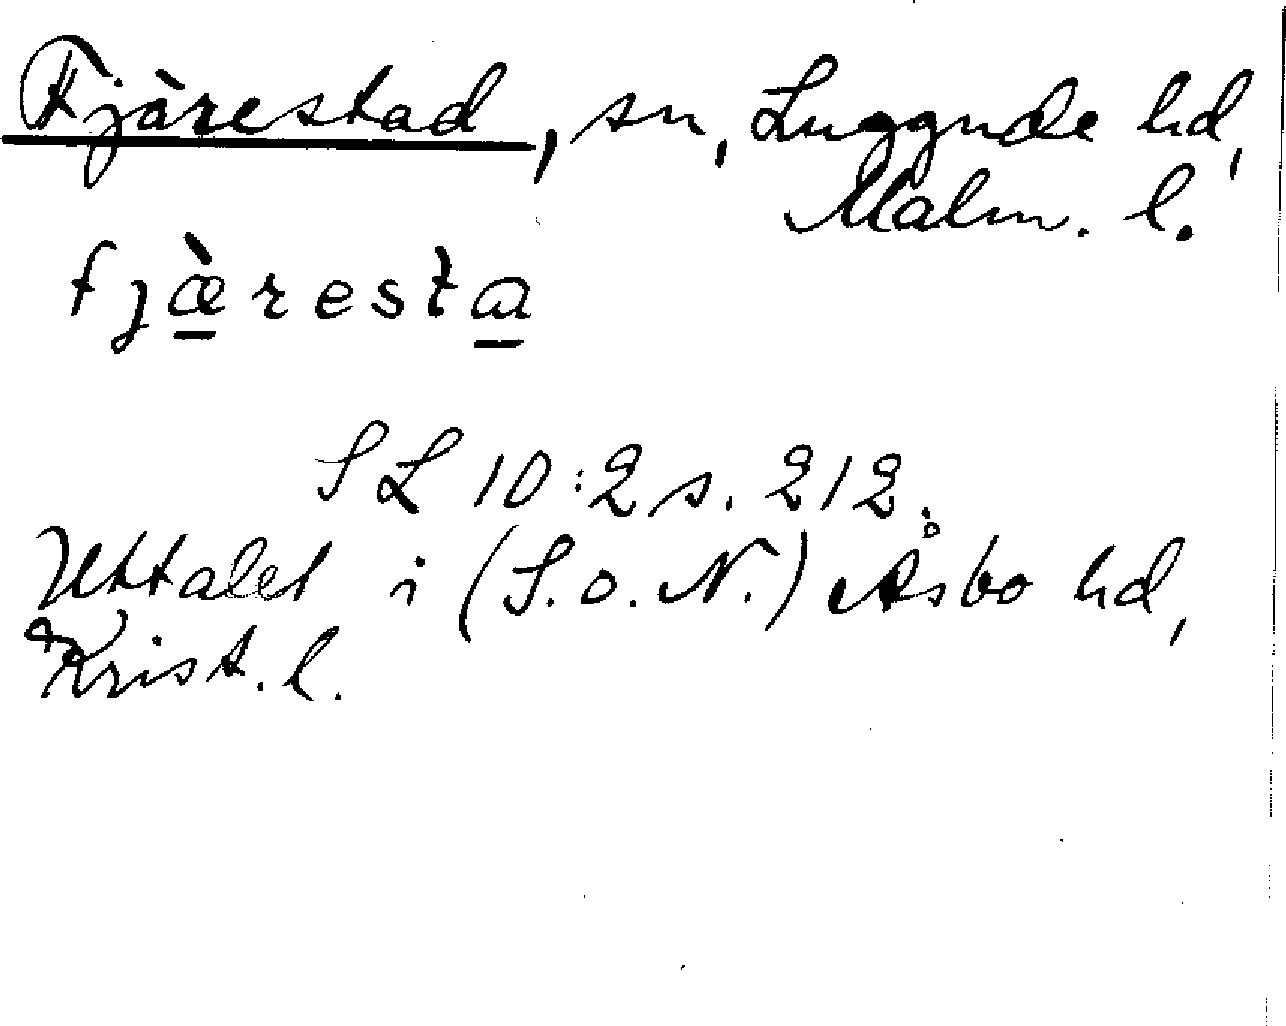 Fjärestad, sn, Luggude hd,
Malm. l.
fjæ̀resta
SL 10:2 s. 212.
Uttalet i (S. o. N.) Åsbo hd,
Krist. l.